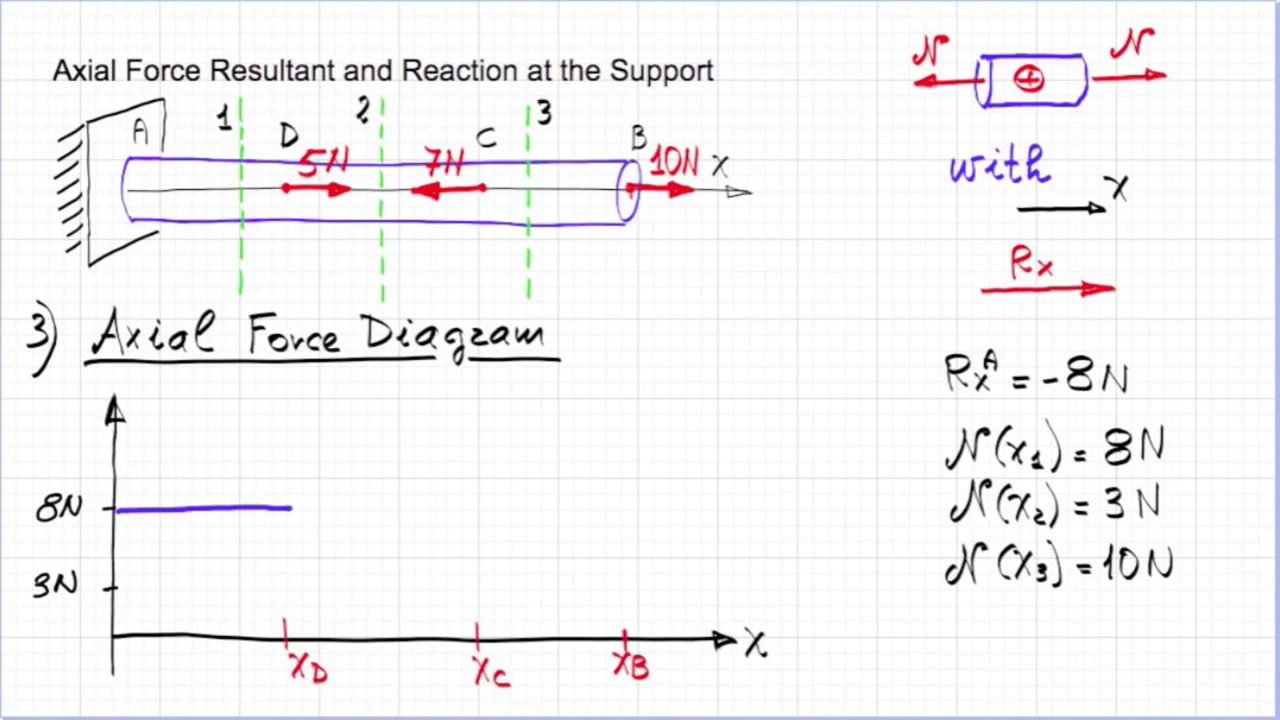 Axial Force Resultant and Reaction at the Support
A 1 D 2 C 3 B
5N 7N 10N X
N + N
with
X
Rx
3) Axial Force Diagram
8N
3N
XD XC XB X
RxA = -8N
N(x1) = 8N
N(x2) = 3N
N(x3) = 10N